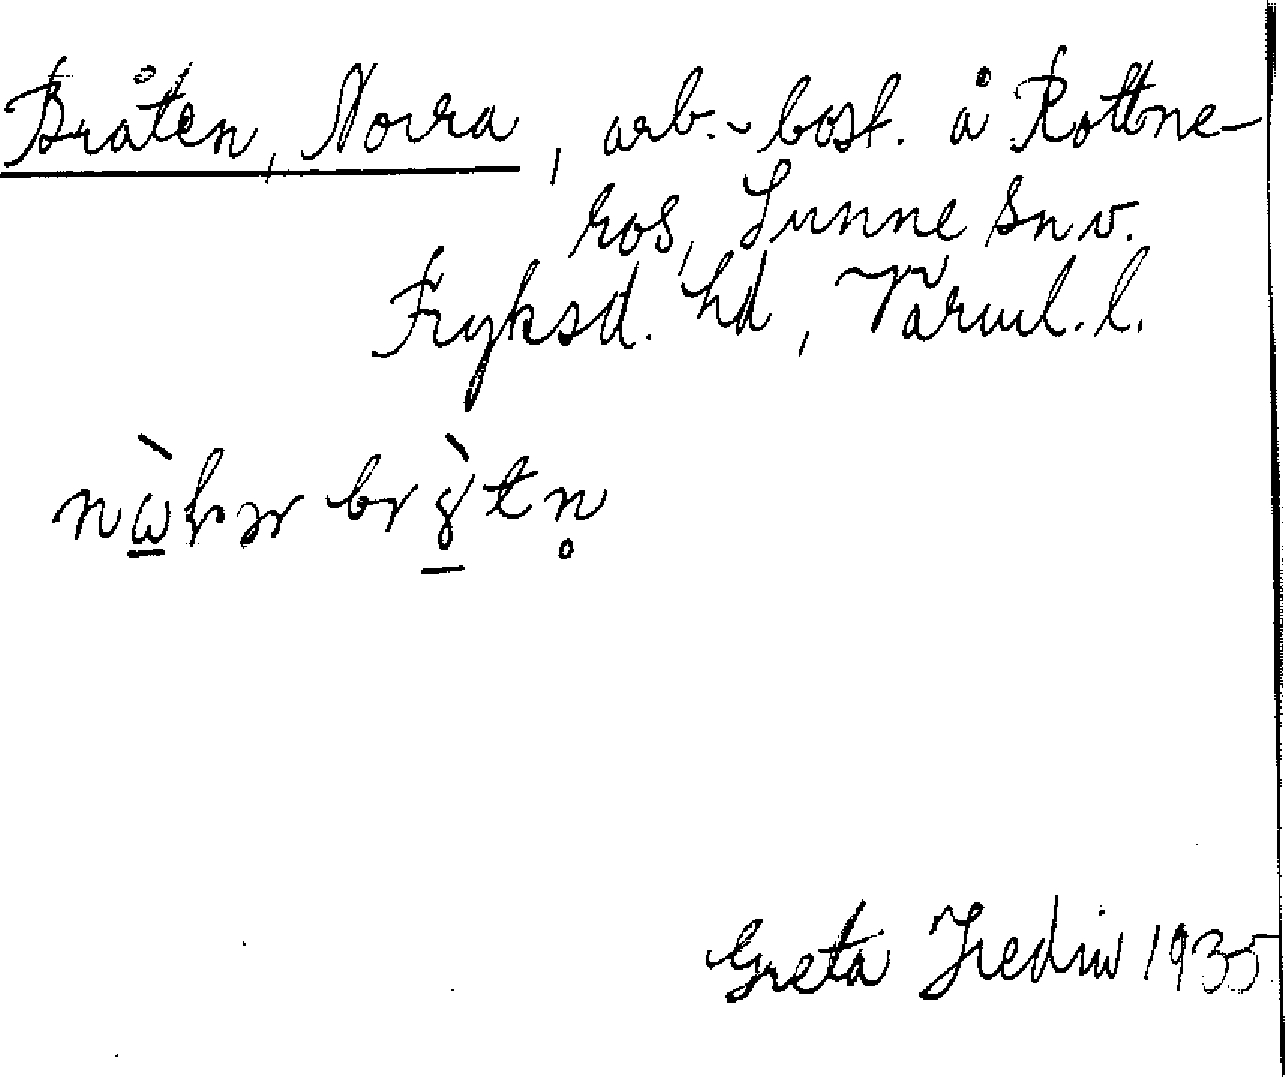 Bråten, Norra, arb.-bost. å Rottne-
ros, Sunne sn v.
Fryksd. hd, Värml. l.
Greta Fredin 1935